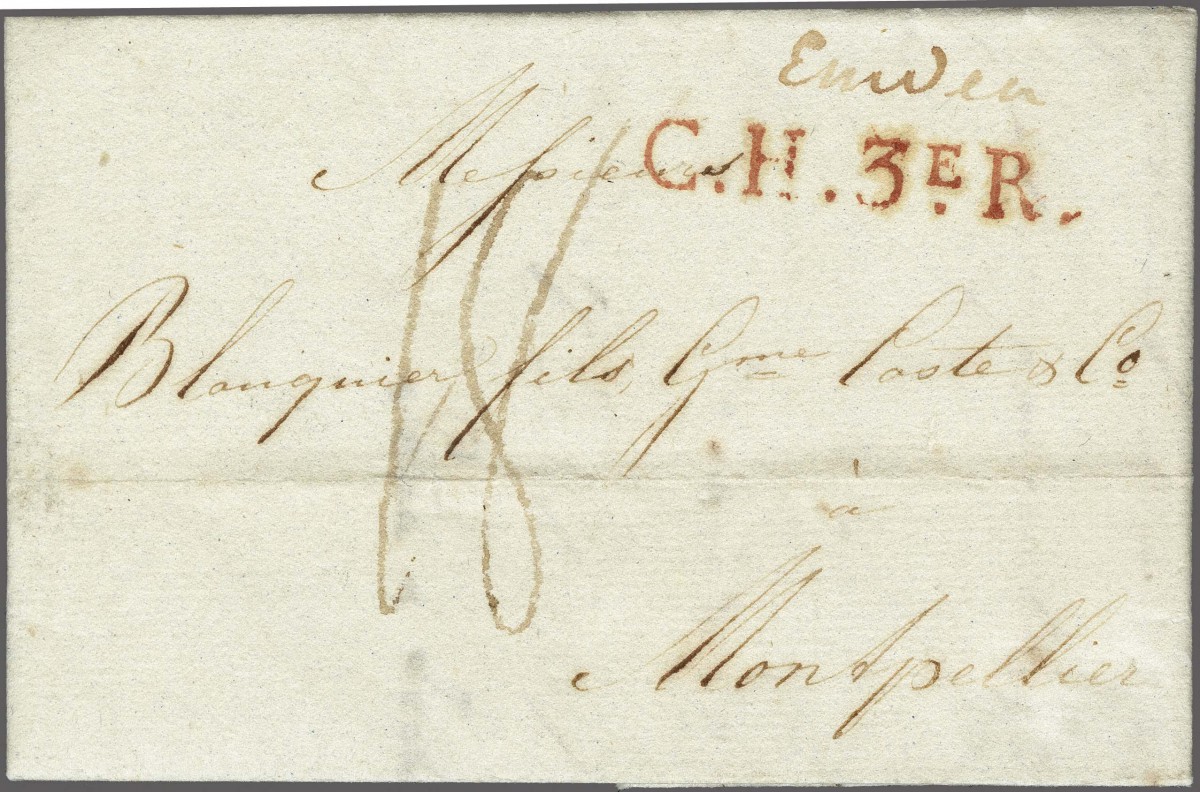 Emden
C.H.3E.R.
Messieurs
18
Blouquier fils, Gme Coste & Co
à
Montpellier